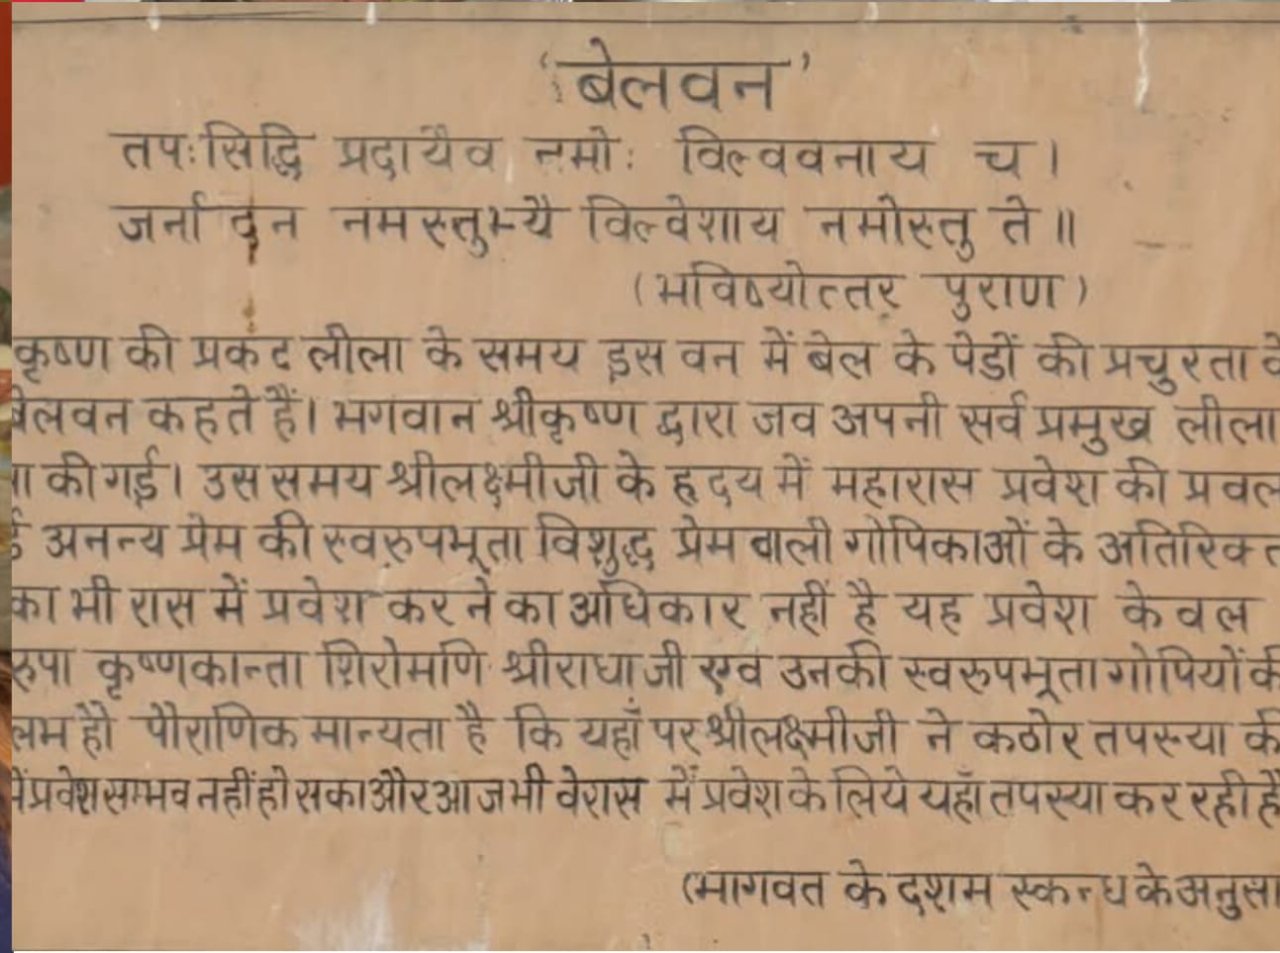 ‘बेलवन’
तपःसिद्धि प्रदायैव नमोः विल्ववनाय च।
जर्नादन नमस्तुभ्यै विल्वेशाय नमोस्तु ते॥
(भविष्योत्तर पुराण)
कृष्ण की प्रकट लीला के समय इस वन में बेल के पेडों की प्रचुरता
बेलवन कहते हैं। भगवान श्रीकृष्ण द्वारा जव अपनी सर्व प्रमुख लीला
की गई। उस समय श्रीलक्ष्मीजी के हृदय में महारास प्रवेश की प्रवल
अनन्य प्रेम की स्वरुपभूता विशुद्ध प्रेम वाली गोपिकाओं के अतिरिक्त
का भी रास में प्रवेश करने का अधिकार नहीं है यह प्रवेश केवल
रुपा कृष्णकान्ता शिरोमणि श्रीराधा जी एव उनकी स्वरुपभूता गोपियों
लभ हौ पौराणिक मान्यता है कि यहाँ पर श्रीलक्ष्मीजी ने कठोर तपस्या की
में प्रवेश सम्भव नहीं हो सका और आज भी वे रास में प्रवेश के लिये यहाँ तपस्या कर रही है
(भागवत के दशम स्कन्ध के अनुसा